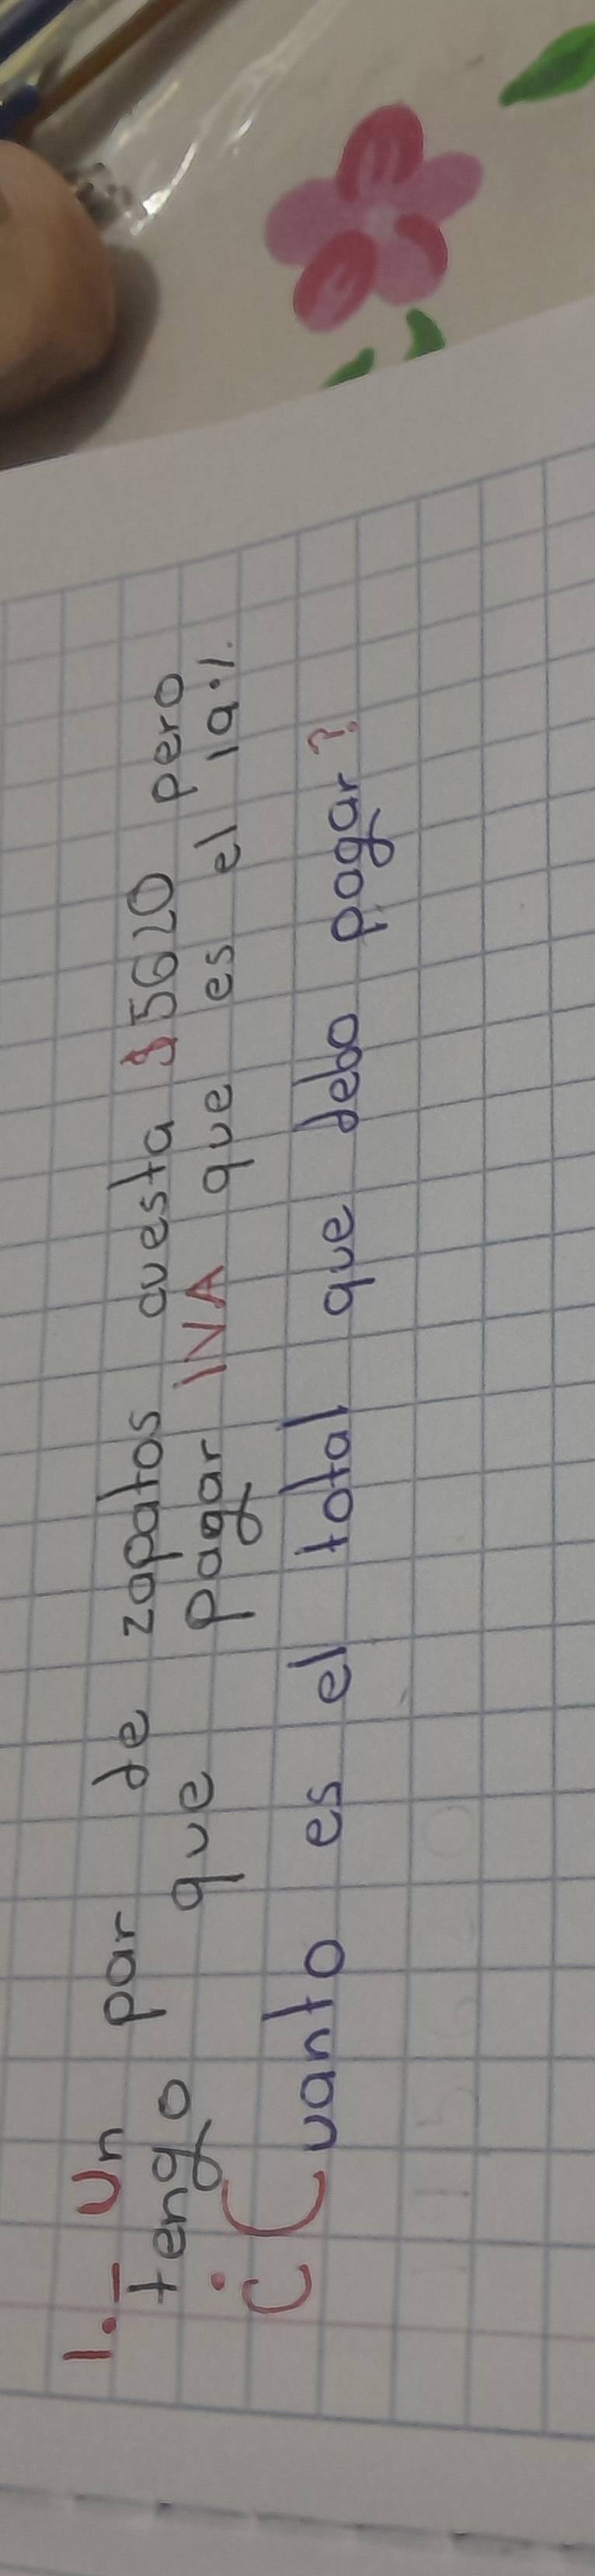 1.- Un par de zapatos cuesta $5620 pero
tengo que pagar IVA que es el 19%.
¿Cuanto es el total que debo pagar?